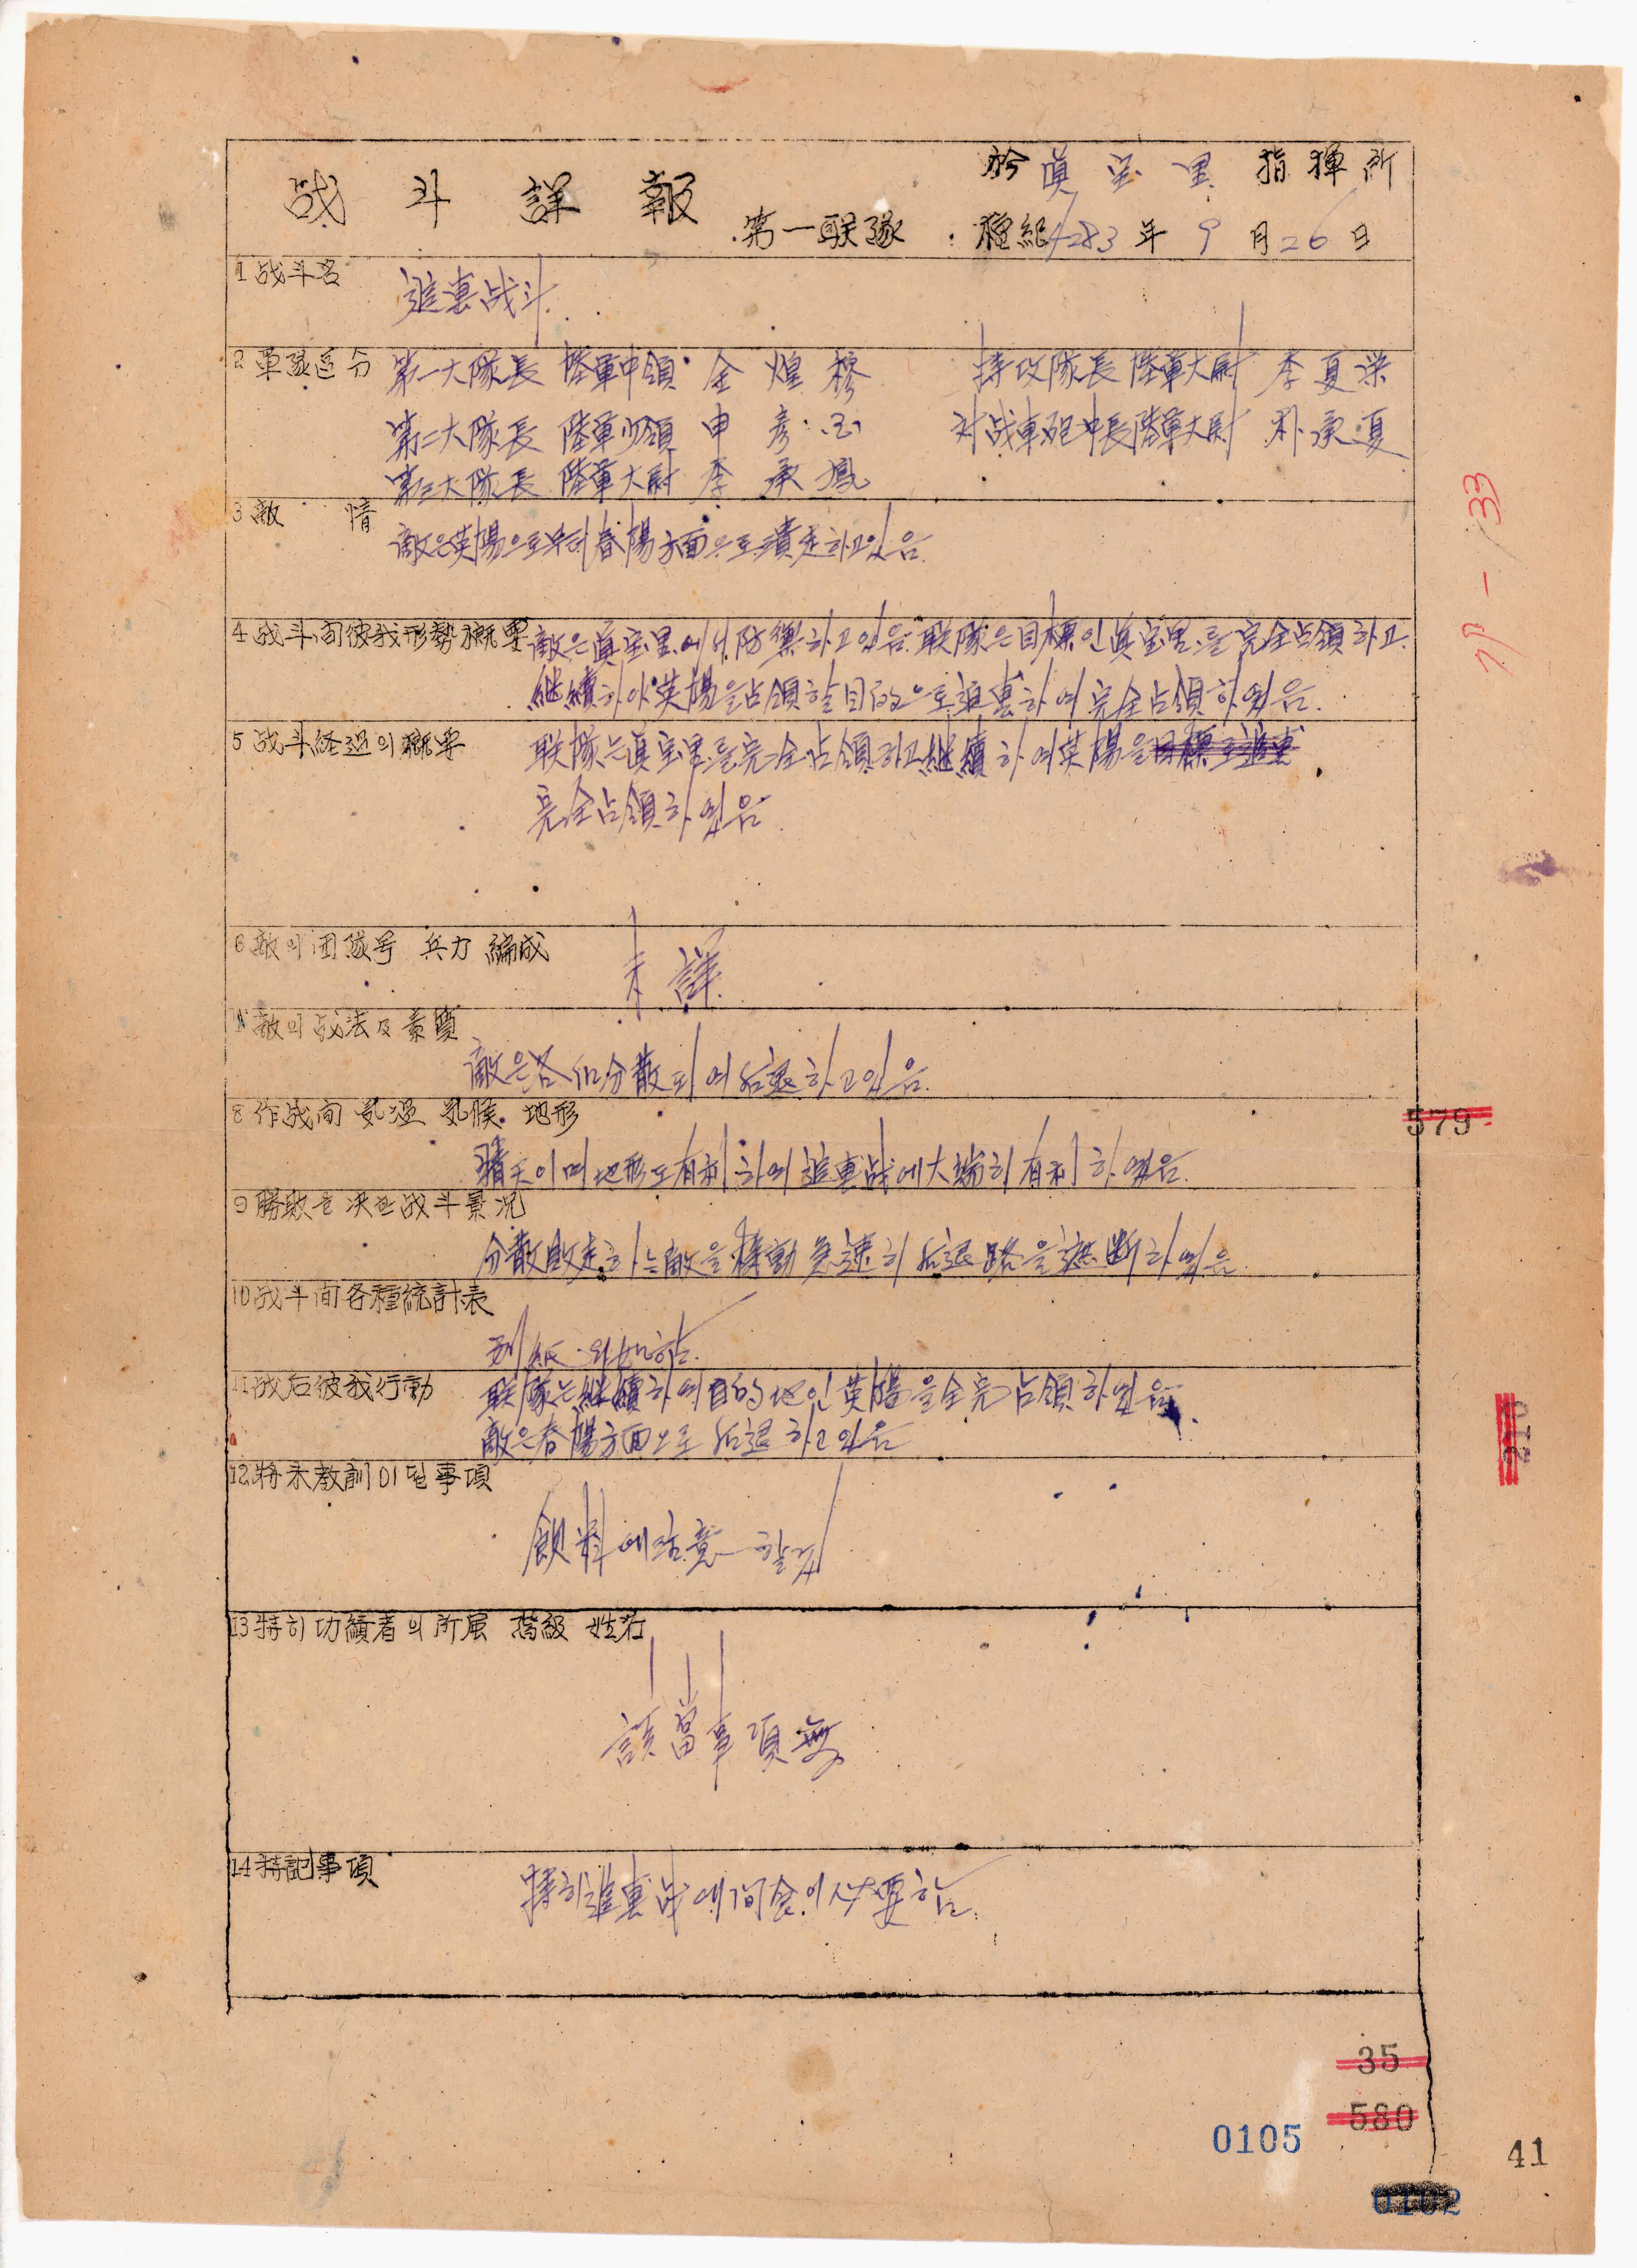 於 眞宝里 指揮所
战斗詳報 第一联隊 檀紀4283年 9月26日
1 战斗名 追击战斗
2 軍隊区分 第一大隊長 陸軍中領 金煌穆 特攻隊長 陸軍大尉 李夏栄
第二大隊長 陸軍少領 申彦国 対战車砲中長 陸軍大尉 朴承夏
第三大隊長 陸軍大尉 李承鳳
3 敵情
敵은 英陽으로부터 春陽方面으로 潰走하고있음
4 战斗间彼我形勢概要 敵은 眞宝里에서 防禦하고있음 联隊은 目標인 眞宝里를 完全占領하고
継續하야 英陽을 占領할 目的으로 追击하여 完全占領하였음.
5 战斗经过의概要 联隊는 眞宝里를 完全占領하고 継續하여 英陽을 目標로追击
完全占領하였음
6 敵의团隊号 兵力 編成
未詳
7 敵의战法及素質
敵은 各個分散되여 后退하고있음.
8 作战间 氣温 氣候 地形
晴天이며 地形도 有利하여 追击战에 大端히 有利하였음
9 勝敗를 决한战斗景况
分散敗走하는 敵을 移動 急速히 后退路을 遮断하였음
10 战斗间各種統計表
別紙와如함
11 战后彼我行動 联隊는 継續하여 目的地인 英陽을 全完占領하였음
敵은 春陽方面으로 后退하고있음
12 将来教訓이될事項
飲料에 注意할것
13 特히功績者의所属 階級 姓名
該當事項無
14 特記事項
特히 追击战에 间食이 必要함.
79-133
579
210
35
580
0105
41
0102